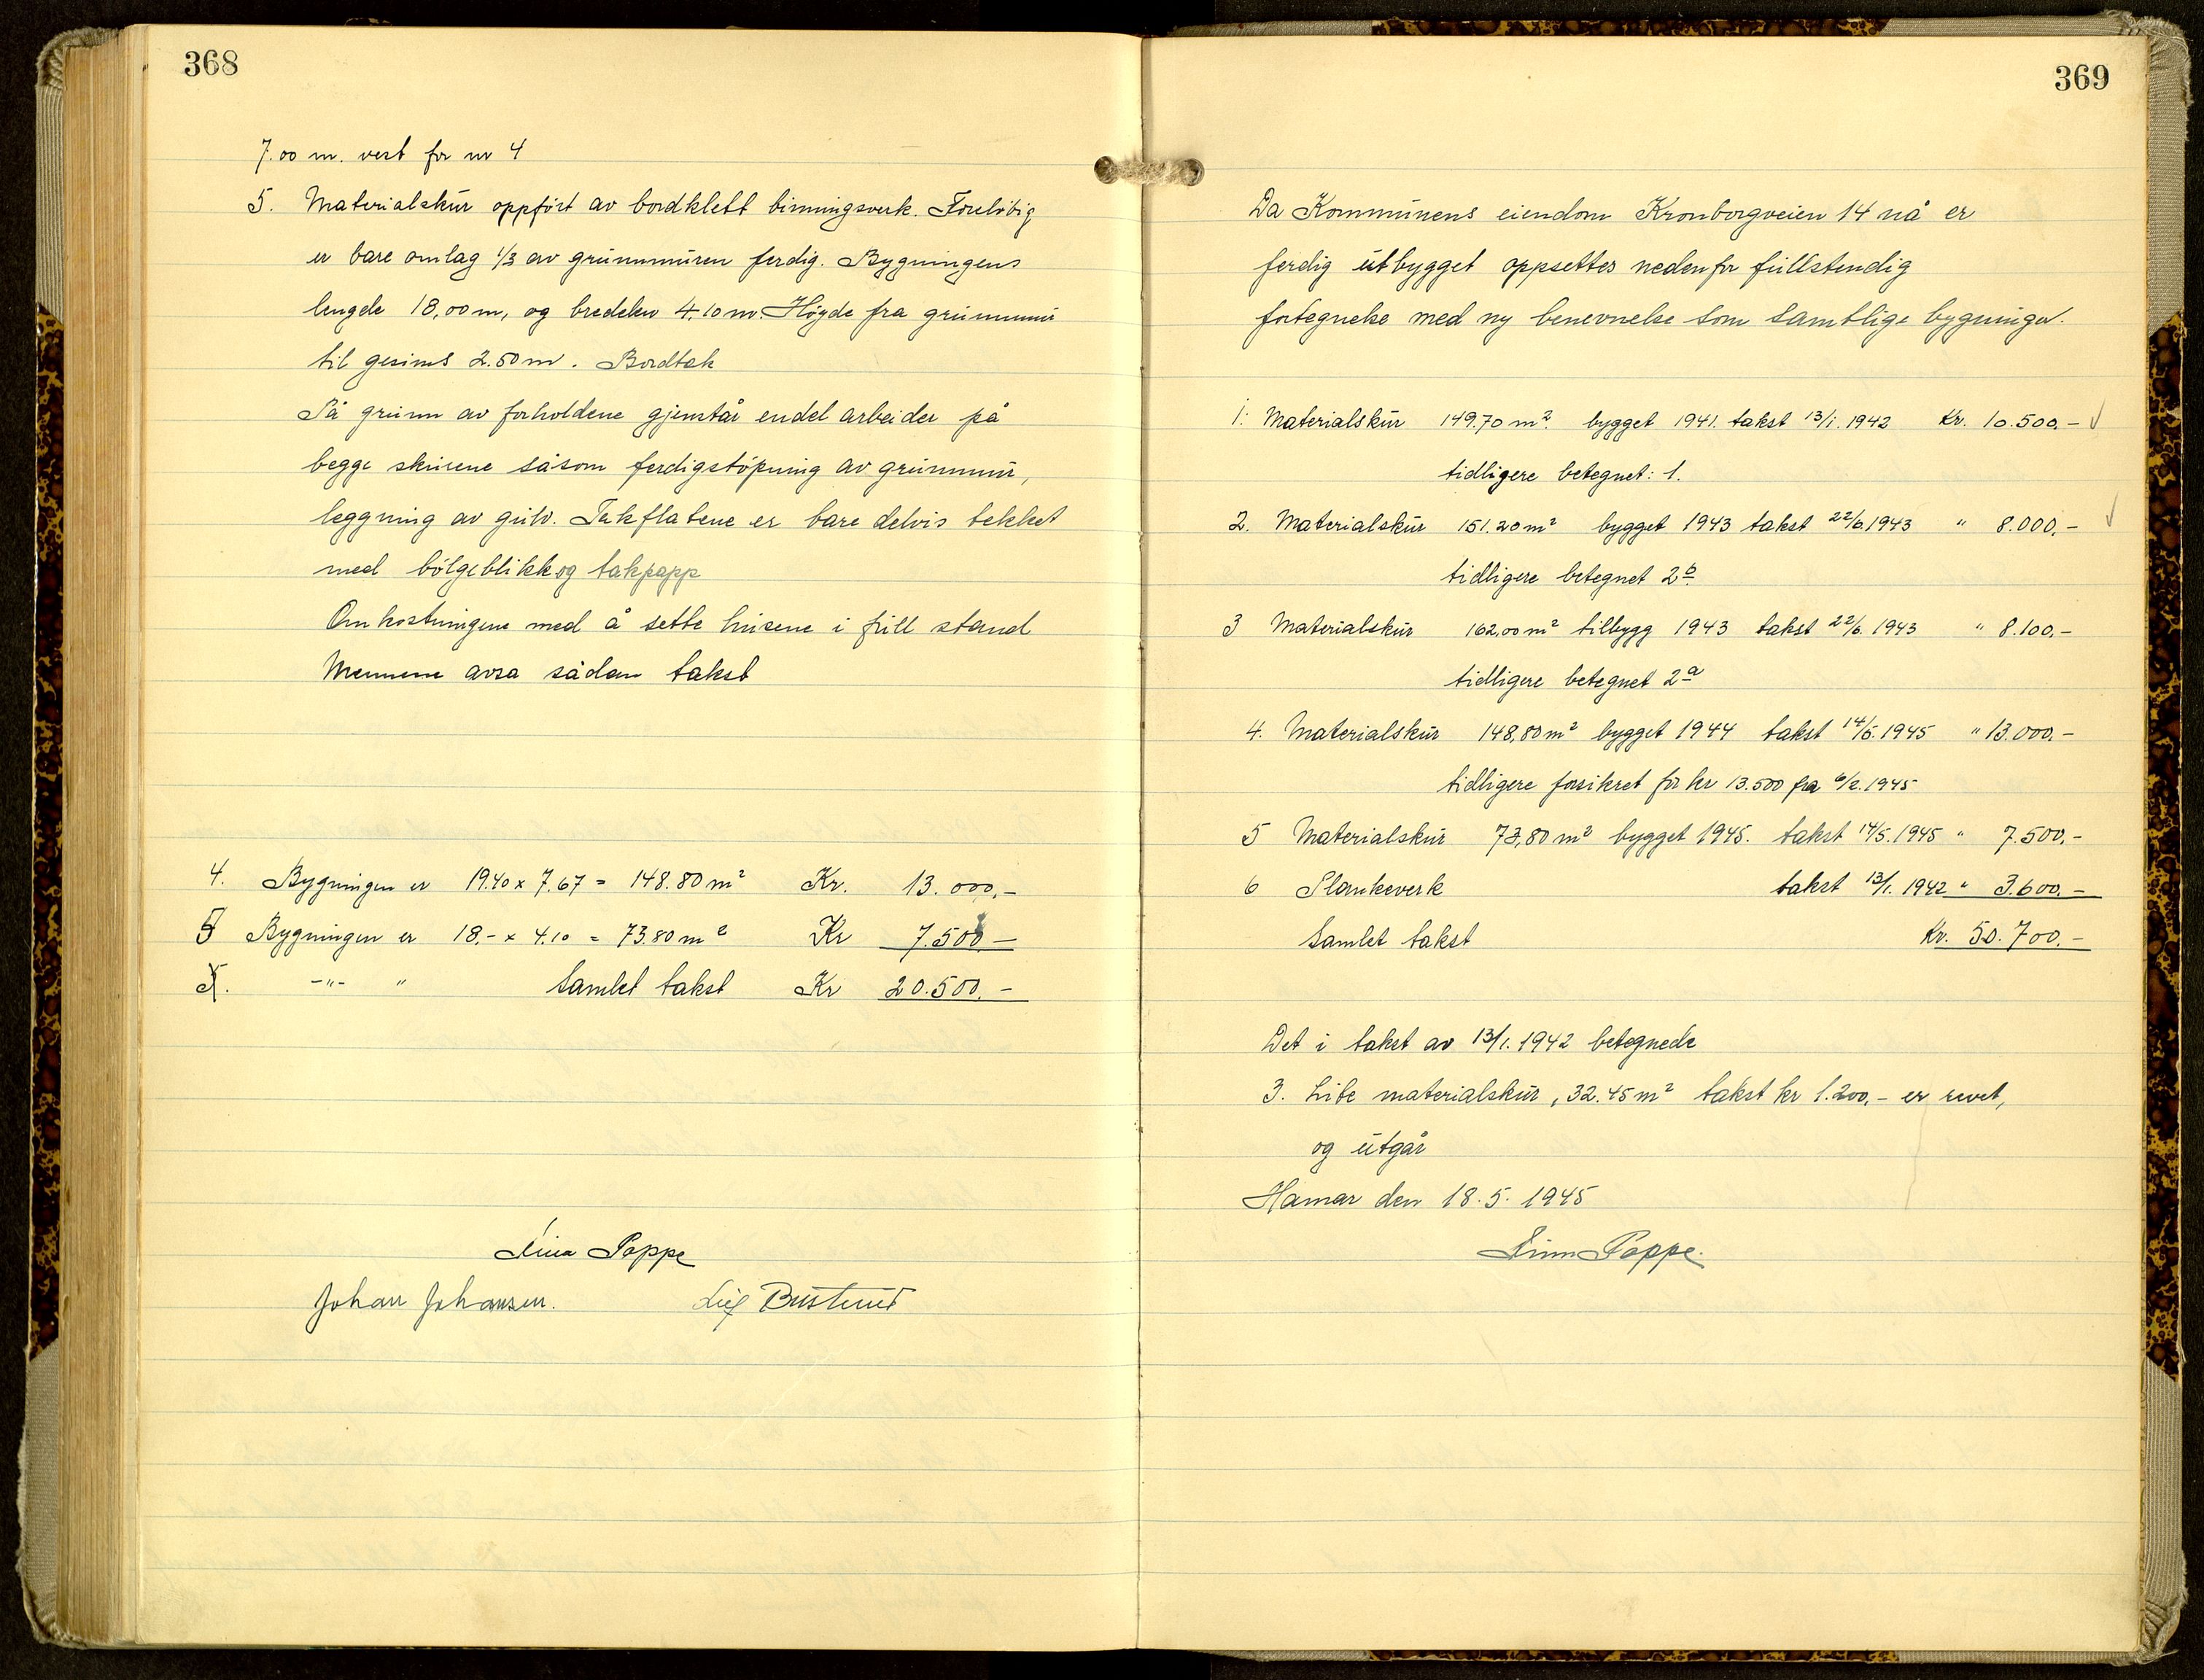 368
7.00 m. vest for nr 4
5. Materialskur oppført av bordklett binningsverk. Foreløbig
er bare omlag 1/3 av grunnmuren ferdig. Bygningens
lengde 18,00 m, og bredden 4.10 m. Høyde fra grunnmur
til gesims 2.50 m. Bordtak
På grunn av forholdene gjenstår endel arbeider på
begge skurene såsom ferdigstøpning av grunnmur,
leggning av gulv. Takflatene er bare delvis tekket
med bølgeblikk og takpapp
Omkostningene med å sette husene i full stand
Mennene avsa sådan takst
4. Bygningen er 19.40 x 7.67 = 148.80 m² Kr. 13.000,-
5 Bygningen er 18,- x 4.10 = 73.80 m² Kr 7.500 -
-"- " Samlet takst Kr 20.500.-
Finn Poppe
Johan Johansen. Leif Bustrud
369
Da Kommunens eiendom Kronborgveien 14 nå er
ferdig utbygget oppsettes nedenfor fullstendig
fortegnelse med ny benevnelse som samtlige bygninger.
1. Materialskur 149.70 m². bygget 1941. takst 13/1. 1942 Kr. 10.500,- ✓
tidligere betegnet: 1.
2. Materialskur 151.20 m² bygget 1943 takst 22/6 1943 " 8.000,- ✓
tidligere betegnet 2b
3 Materialskur 162,00 m² tilbygg 1943 takst 22/6. 1943 " 8.100,-
tidligere betegnet 2a
4. Materialskur 148,80 m² bygget 1944 takst 14/5. 1945 " 13.000,-
tidligere forsikret for kr 13.500 fra 6/2. 1945
5 Materialskur 73,80 m² bygget 1945. takst 14/5. 1945 " 7.500,-
6 Plankeverk takst 13/1. 1942 " 3.600,-
Samlet takst Kr. 50.700.-
Det i takst av 13/1. 1942 betegnede
3. Lite materialskur, 32.45 m² takst kr 1.200,- er revet,
og utgår
Hamar den 18.5. 1945
Finn Poppe.